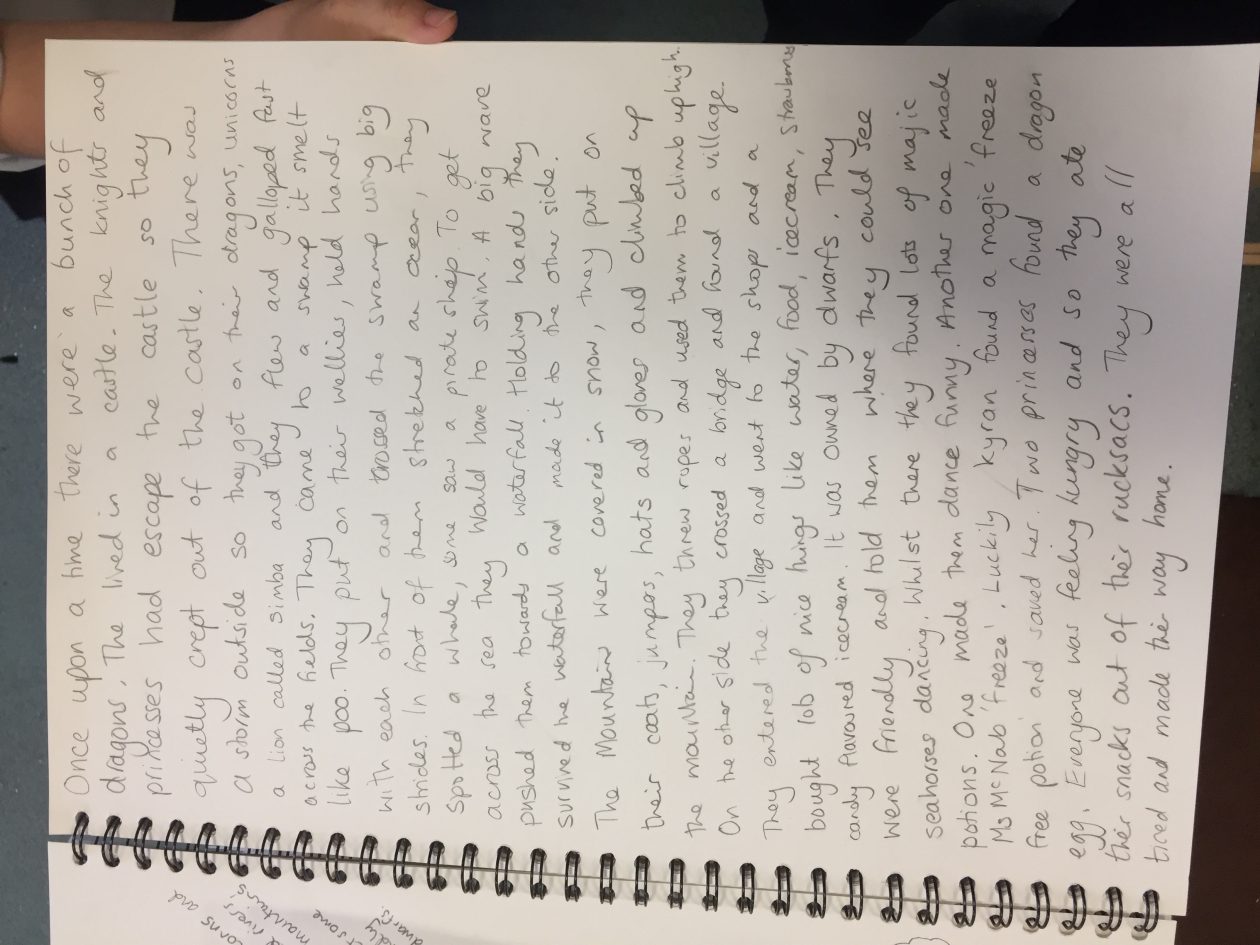 Once upon a time there were a bunch of
dragons, The lived in a castle. The knights and
princesses had escape the castle so they
quietly crept out of the castle. There was
a storm outside so they got on their dragons, unicorns
a lion called simba and they flew and galloped fast
across the fields. They came to a swamp it smelt
like poo. They put on their wellies, held hands
with each other and crossed the swamp using big
strides. In front of them stretched an ocean, they
spotted a whale, some saw a pirate ship. To get
across the sea they would have to swim. A big wave
pushed them towards a waterfall. Holding hands they
survived the waterfall and made it to the other side.
The Mountains were covered in snow, they put on
their coats, jumpers, hats and gloves and climbed up
the mountain. They threw ropes and used them to climb up high.
On the other side they crossed a bridge and found a village.
They entered the village and went to the shop and a
bought lob of nice things like water, food, icecream, strawberry
candy flavoured icecream. It was owned by dwarfs. They
were friendly and told them where they could see
seahorses dancing. Whilst there they found lots of majic
potions. One made them dance funny. Another one made
Ms McNab 'freeze'. Luckily Kyran found a magic 'freeze
free potion' and saved her. Two princesses found a dragon
egg. Everyone was feeling hungry and so they ate
their snacks out of their rucksacs. They were all
tired and made their way home.
corns and
rivers
mountains
some
dwarfs.